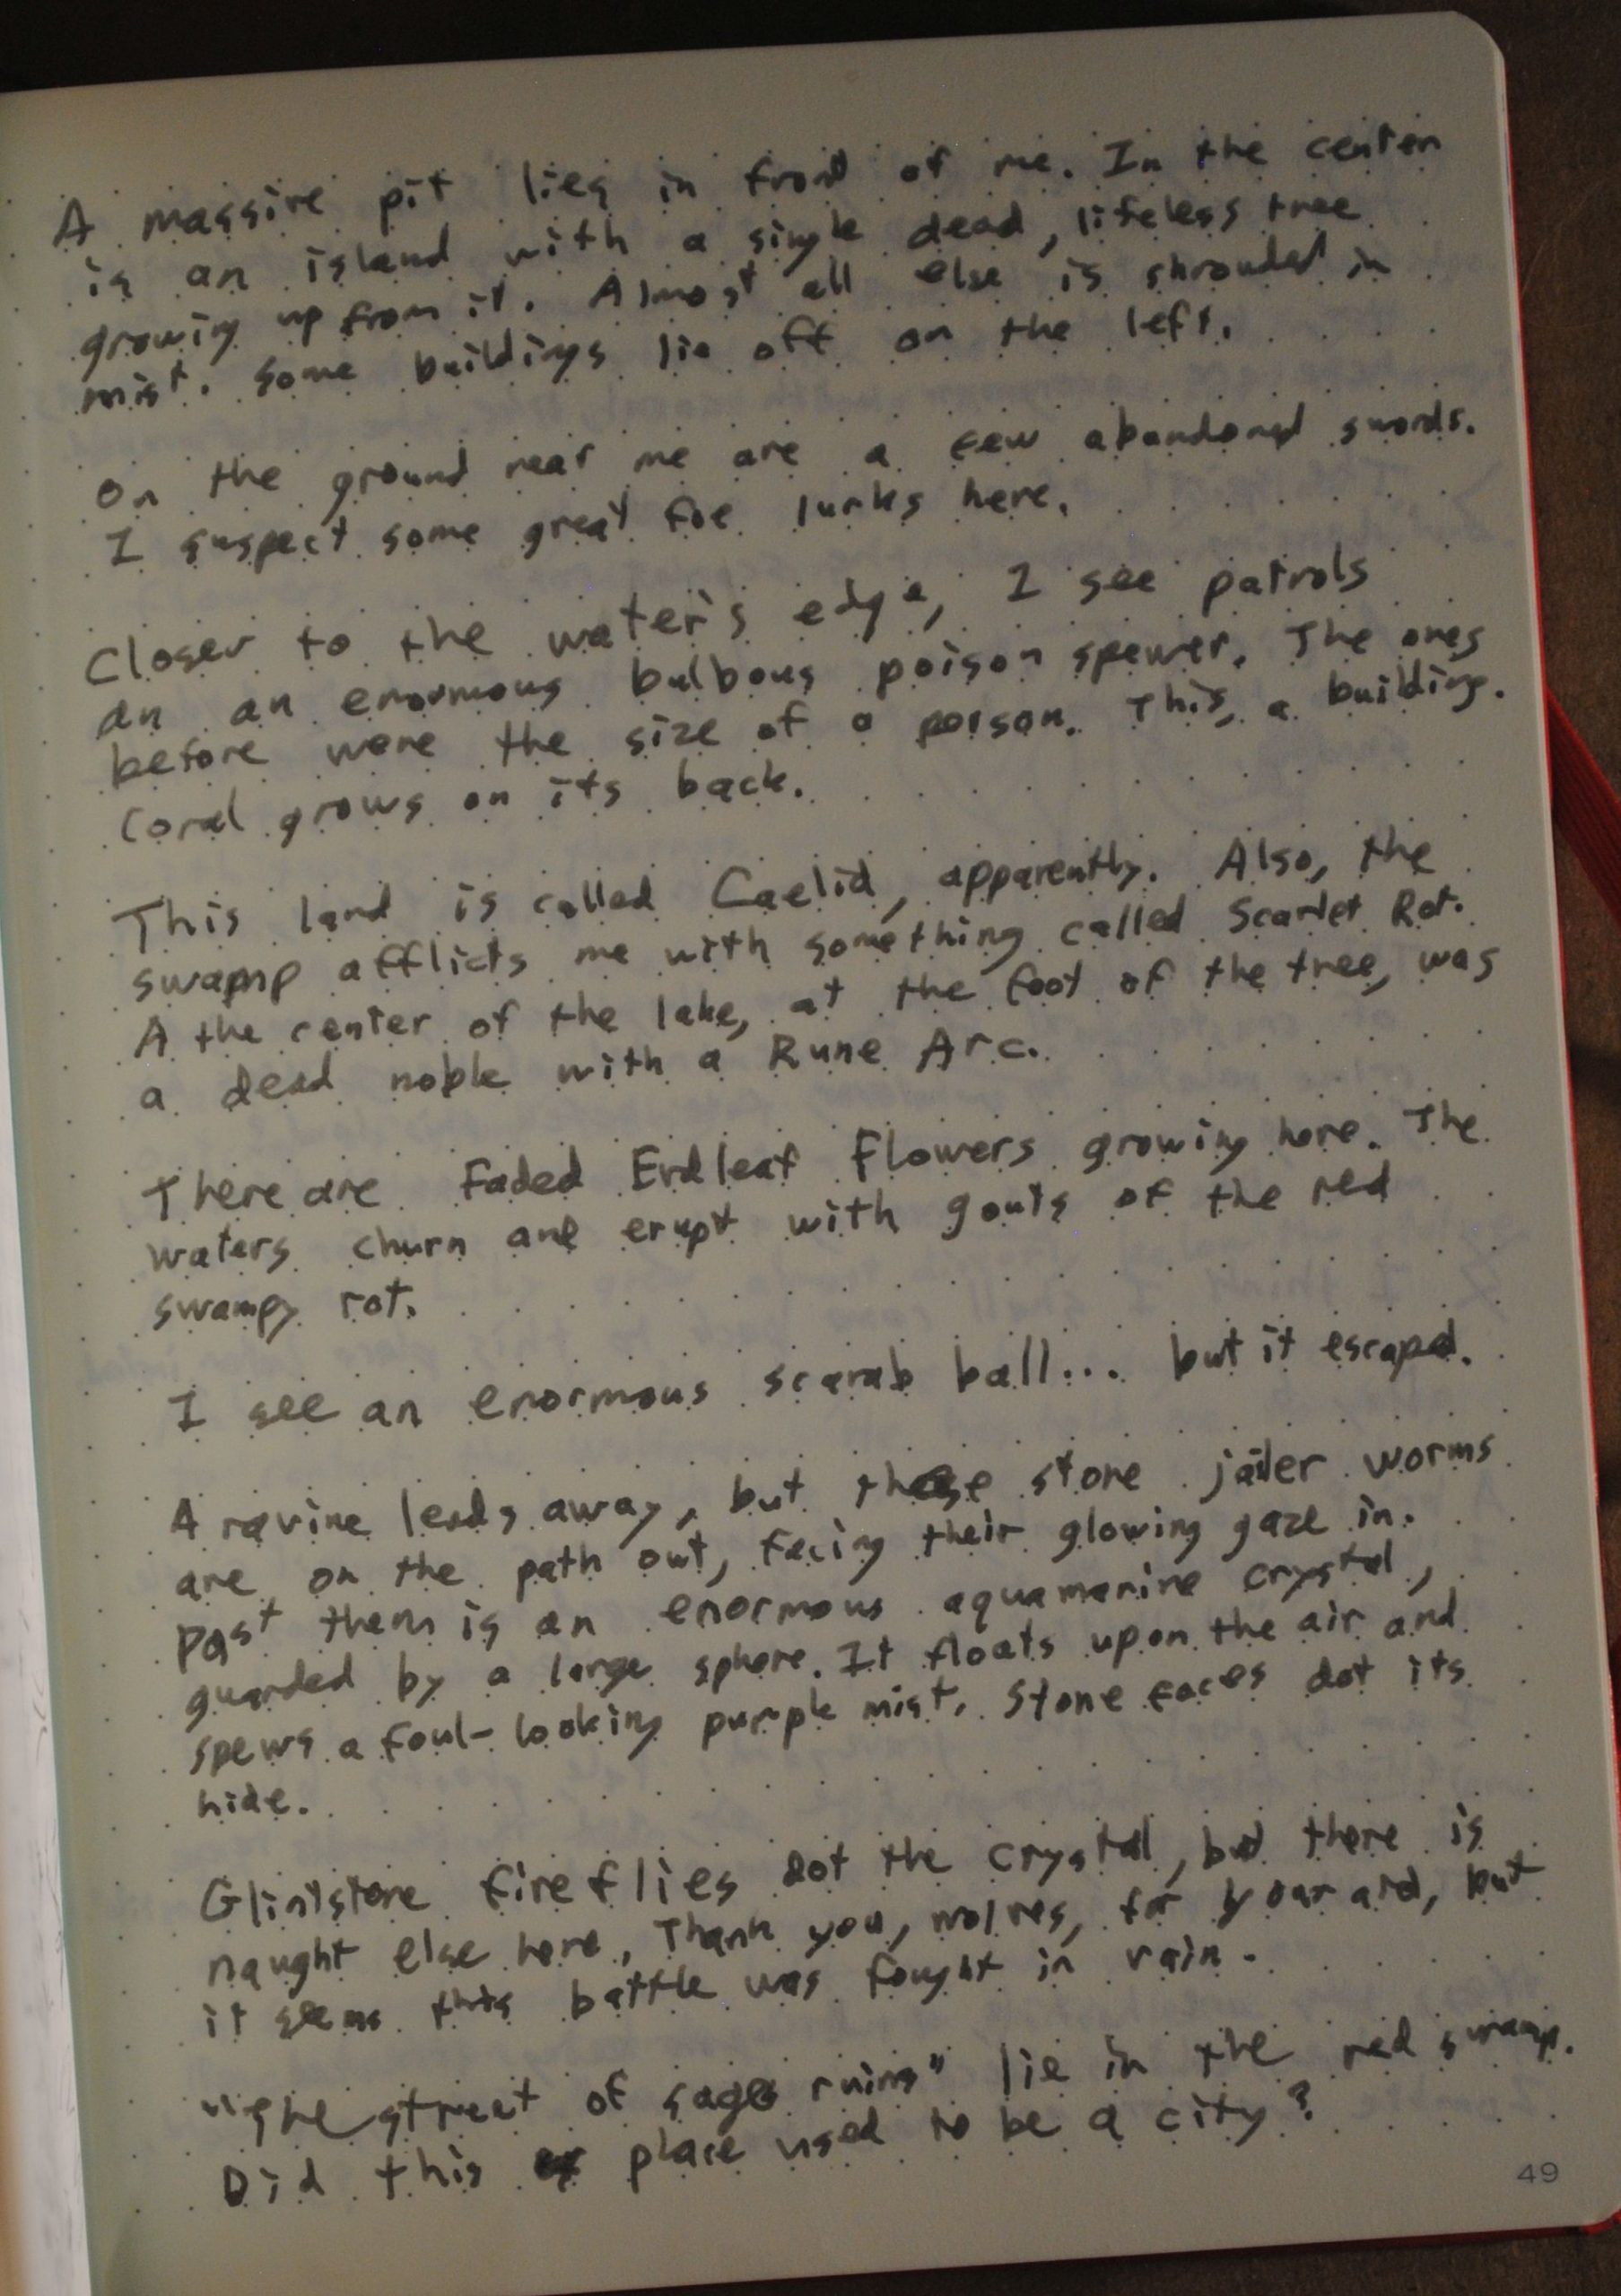 A massive pit lies in front of me. In the center
is an island with a single dead, lifeless tree
growing up from it. Almost all else is shrouded in
mist. Some buildings lie off on the left.
On the ground near me are a few abandoned swords.
I suspect some great foe lurks here.
Closer to the water's edge, I see patrols
an an enormous bulbous poison spewer. The ones
before were the size of a person. This, a building.
Coral grows on its back.
This land is called Caelid, apparently. Also, the
swamp afflicts me with something called Scarlet Rot.
A the center of the lake, at the foot of the tree, was
a dead noble with a Rune Arc.
There are Faded Erdleaf Flowers growing here. The
waters churn and erupt with gouts of the red
swampy rot.
I see an enormous scarab ball... but it escaped.
A ravine leads away, but these stone jailer worms
are on the path out, facing their glowing gaze in.
Past them is an enormous aquamarine crystal,
guarded by a large sphere. It floats upon the air and
spews a foul-looking purple mist. Stone faces dot its
hide.
Glintstone fireflies dot the crystal, but there is
naught else here. Thank you, wolves, for your aid, but
it seems this battle was fought in vain.
"The street of sages ruins" lie in the red swamp.
Did this place used to be a city?
49